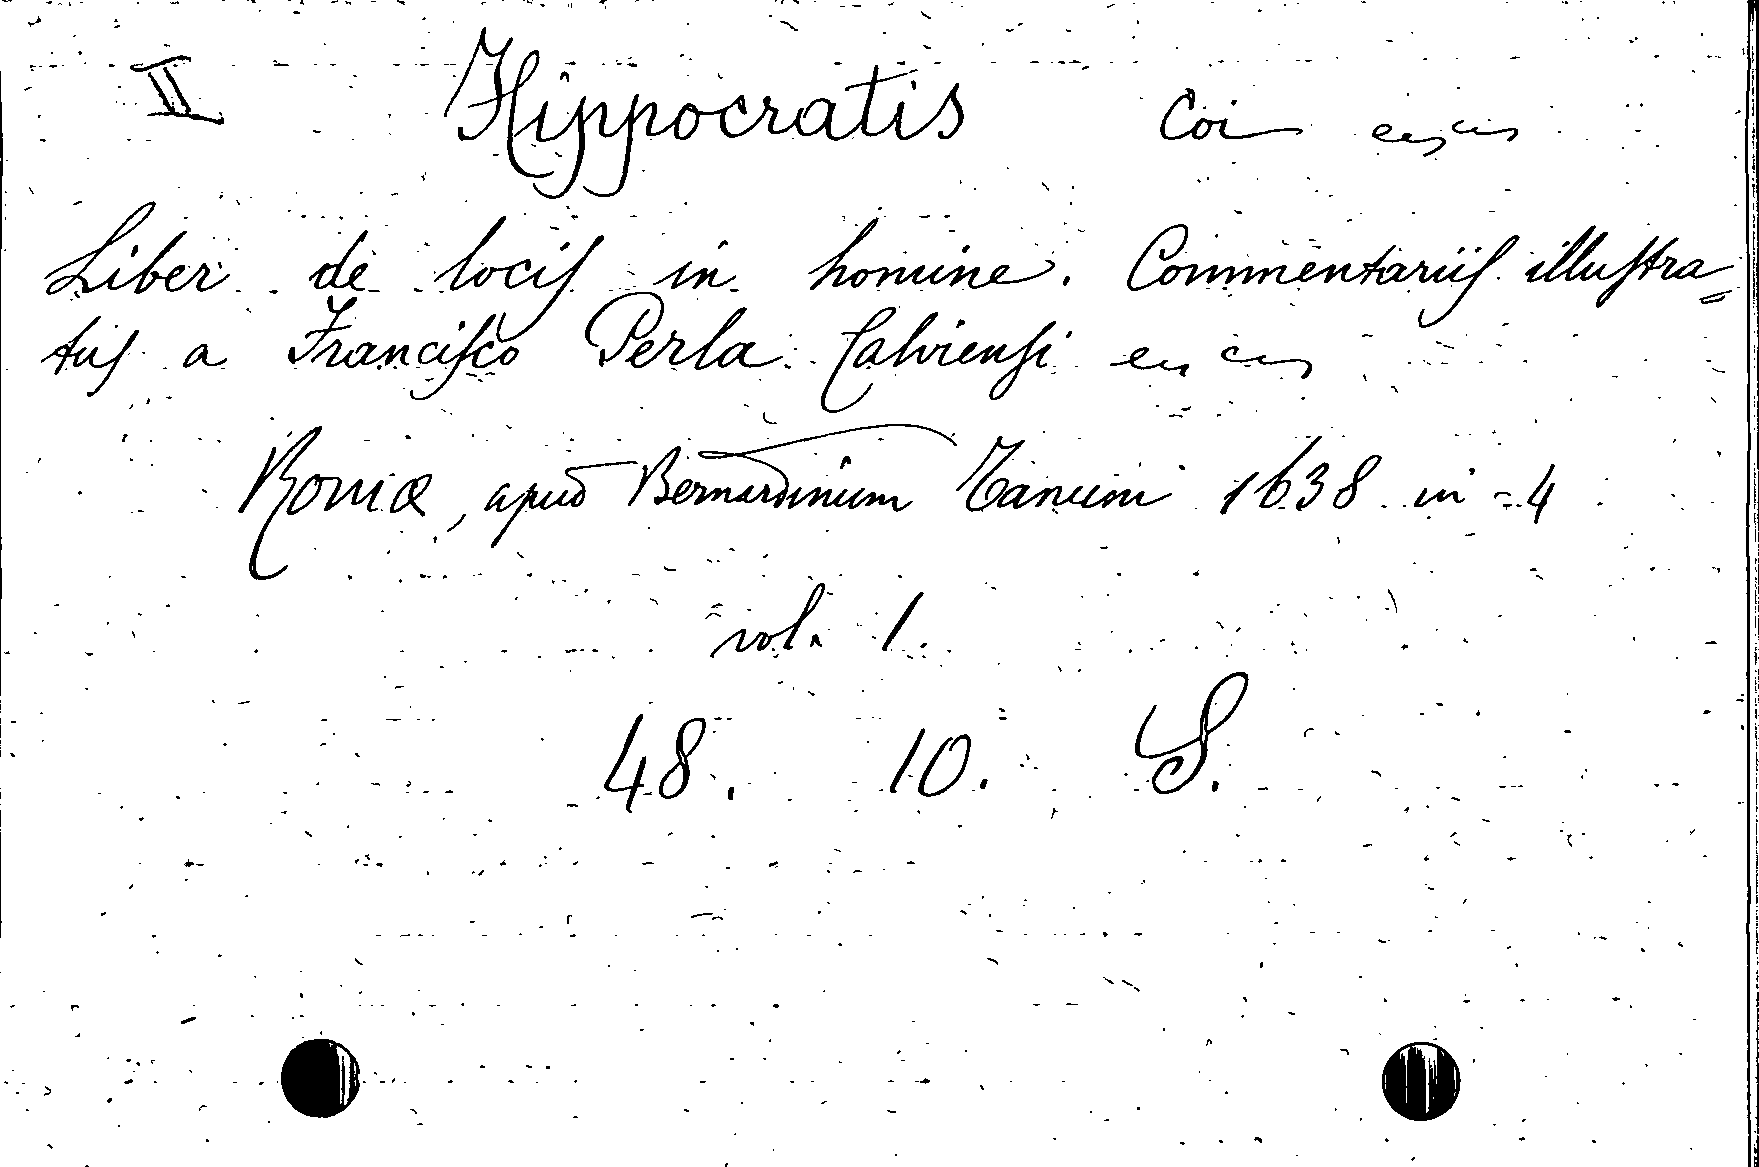 II Hippocratis Coi
Liber de locis in homine. Commentariis illustra=
tus a Francisco Perla Calviensi
Romæ, apud Bernardinum Tanum 1638 in=4
vol. 1.
48. 10. S.